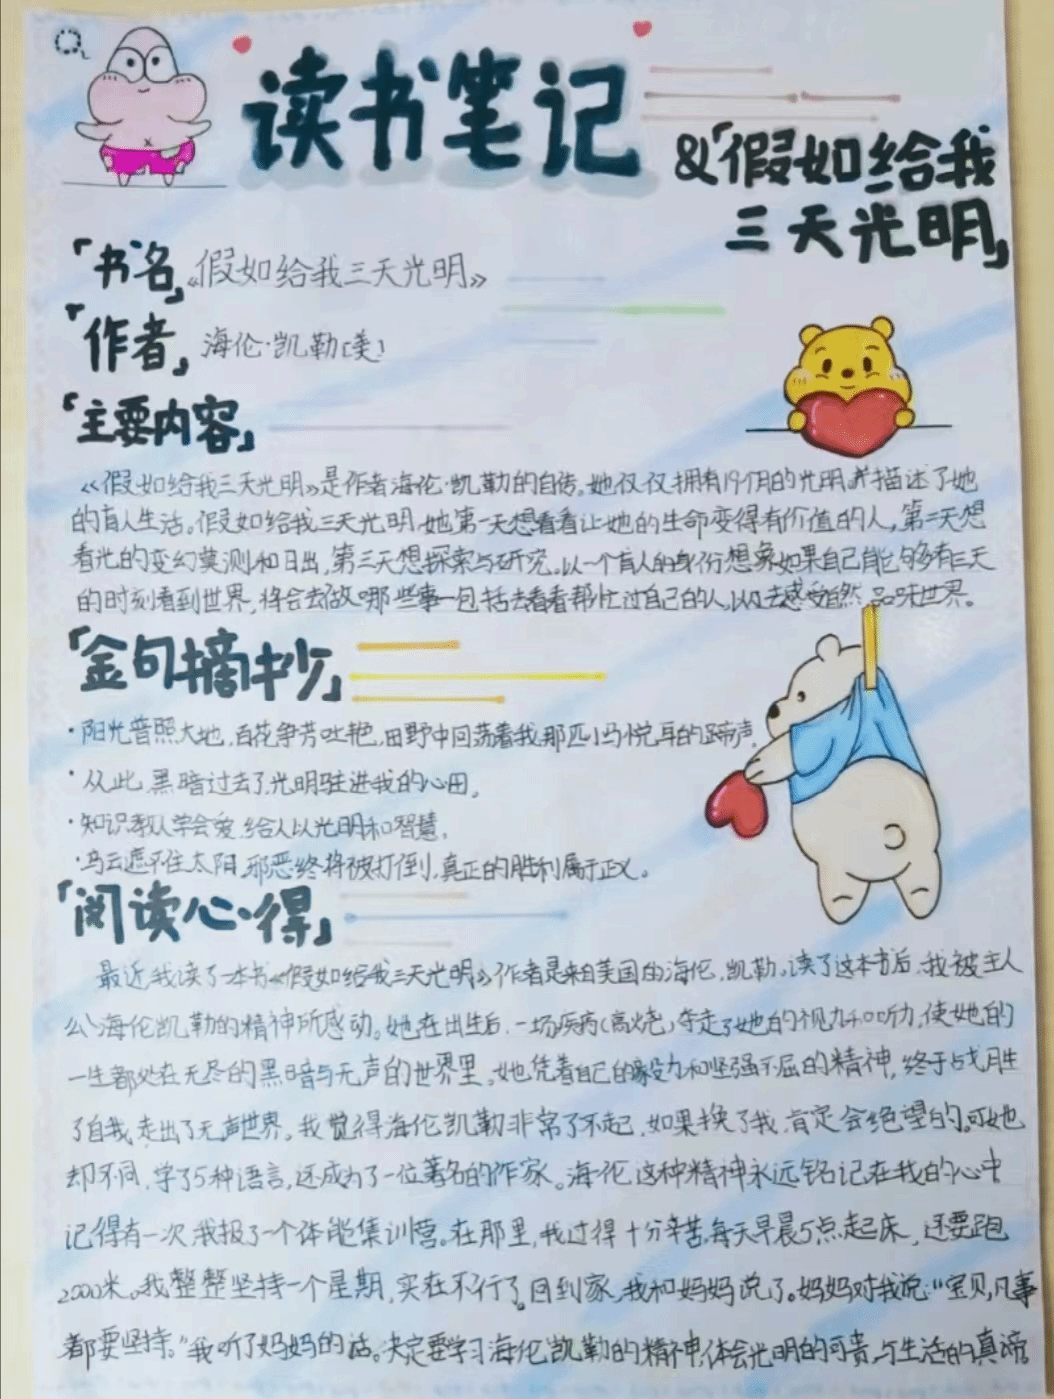 读书笔记
&「假如给我
三天光明」
「书名」《假如给我三天光明》
「作者」海伦·凯勒[美]
「主要内容」
《假如给我三天光明》是作者海伦·凯勒的自传。她仅仅拥有19个月的光明,并描述了她
的盲人生活。假如给我三天光明,她第一天想看看让她的生命变得有价值的人,第二天想
看光的变幻莫测和日出,第三天想探索与研究。以一个盲人的身份想象如果自己能够有三天
的时刻看到世界,将会去做哪些事—包括去看看帮忙过自己的人,以及去感受自然,品味世界。
「金句摘抄」
·阳光普照大地,百花争芳吐艳,田野中回荡着我那匹小马悦耳的蹄声.
·从此,黑暗过去了,光明驻进我的心田。
·知识教人学会爱,给人以光明和智慧。
·乌云遮不住太阳,邪恶终将被打倒,真正的胜利属于正义。
「阅读心得」
最近,我读了一本书《假如给我三天光明》,作者是来自美国的海伦.凯勒。读了这本书后,我被主人
公海伦凯勒的精神所感动。她在出生后,一场疾病(高烧)夺走了她的视力和听力,使她的
一生都处在无尽的黑暗与无声的世界里。她凭着自己的毅力和坚强不屈的精神,终于战胜
了自我,走出了无声世界。我觉得海伦凯勒非常了不起,如果换了我,肯定会绝望的。可她
却不同,学了5种语言,还成为了一位著名的作家。海伦这种精神永远铭记在我的心中
记得有一次,我报了一个体能集训营。在那里,我过得十分辛苦,每天早晨5点起床,还要跑
2000米。我整整坚持一个星期,实在不行了。回到家,我和妈妈说了。妈妈对我说:"宝贝,凡事
都要坚持。"我听了妈妈的话。决定要学习海伦凯勒的精神,体会光明的可贵,与生活的真谛。